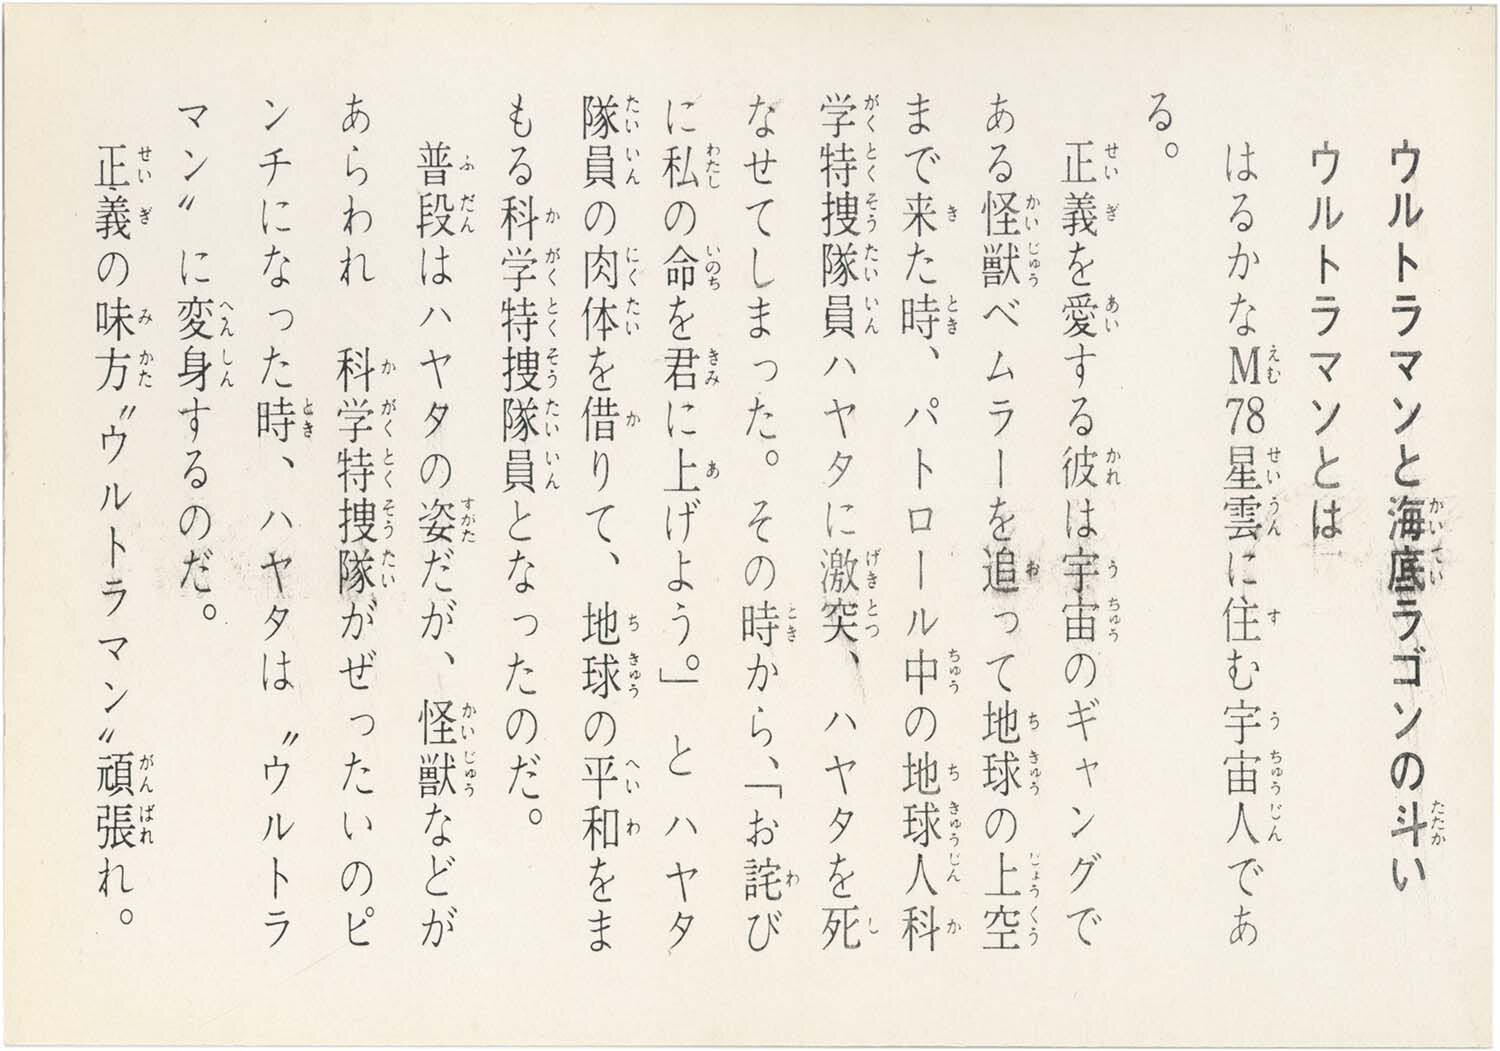 ウルトラマンと海底ラゴンの斗い
ウルトラマンとは
はるかなM78星雲に住む宇宙人であ
る。
正義を愛する彼は宇宙のギャングで
ある怪獣ベムラーを追って地球の上空
まで来た時、パトロール中の地球人科
学特捜隊員ハヤタに激突、ハヤタを死
なせてしまった。その時から、「お詫び
に私の命を君に上げよう。」とハヤタ
隊員の肉体を借りて、地球の平和をま
もる科学特捜隊員となったのだ。
普段はハヤタの姿だが、怪獣などが
あらわれ　科学特捜隊がぜったいのピ
ンチになった時、ハヤタは〝ウルトラ
マン〟に変身するのだ。
正義の味方〝ウルトラマン〟頑張れ。